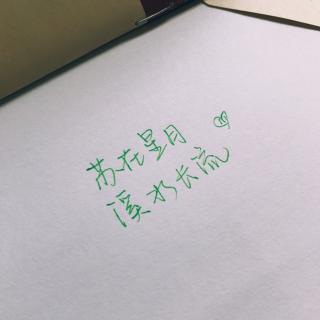 苏在星月
溪水长流